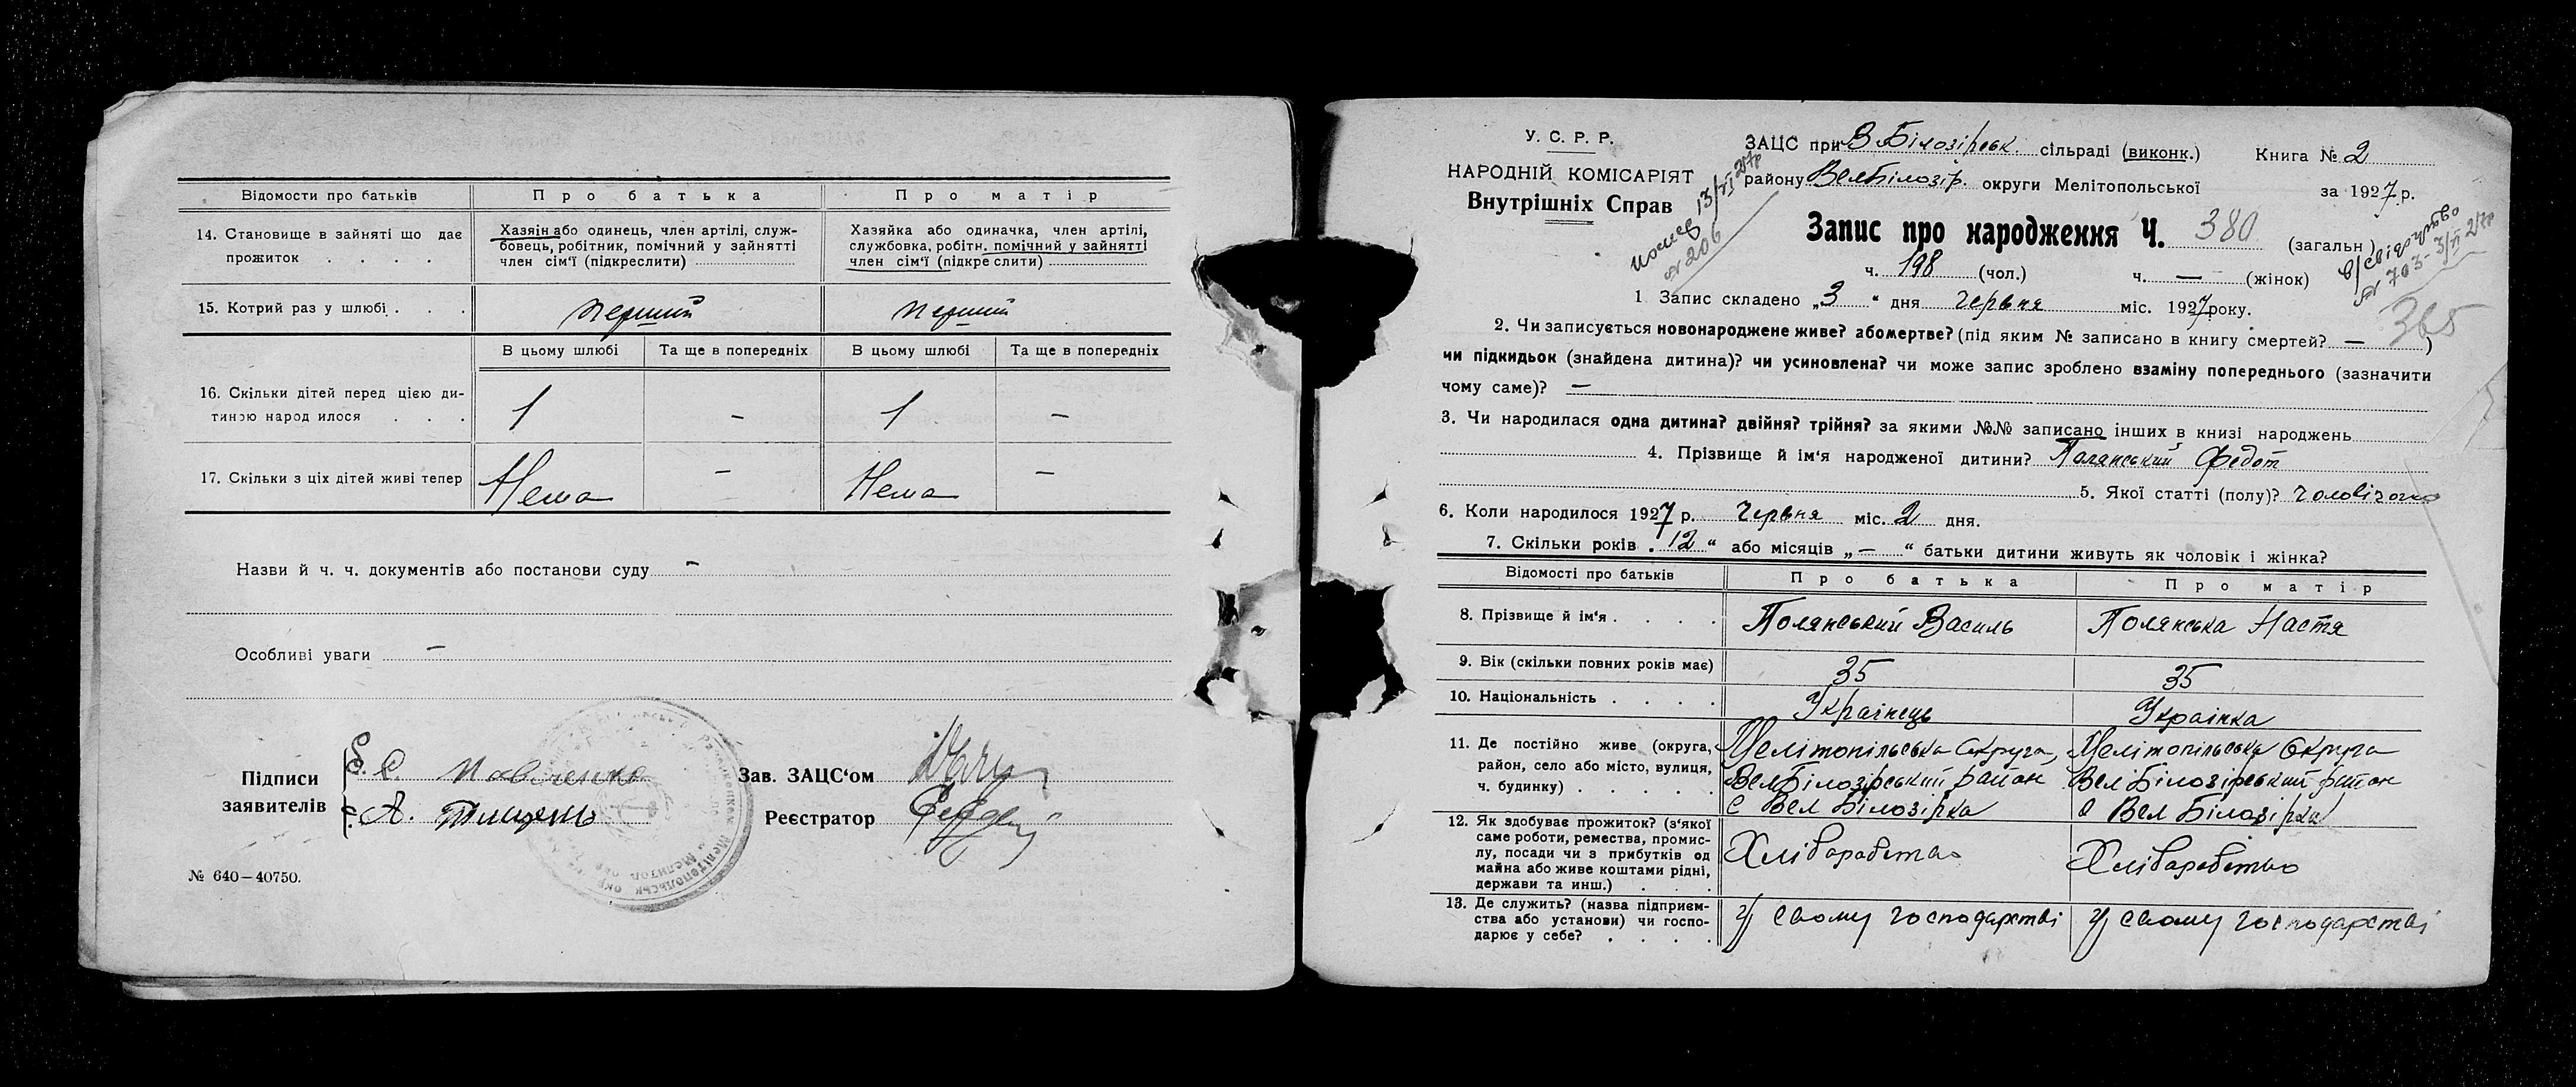 Відомости про батьків
Про батька
Про матір
14. Становище в зайняті що дає прожиток . . . .
Хазяїн або одинець, член артілі, служ-
бовець, робітник, помічний у зайнятті
член сім'ї (підкреслити)
Хазяйка або одиначка, член артілі,
службовка, робітн. помічний у зайнятті
член сім'ї (підкреслити)
15. Котрий раз у шлюбі . . .
перший
перший
В цьому шлюбі
Та ще в попередніх
В цьому шлюбі
Та ще в попередніх
16. Скільки дітей перед цією ди-
тиною народилося . . .
1
–
1
–
17. Скільки з ціх дітей живі тепер
Нема
–
Нема
–
Назви й ч. ч. документів або постанови суду –
Особливі уваги –
Підписи
заявителів
Павленко
А. Тищенко
Зав. ЗАЦС'ом
Реєстратор
№ 640—40750.
У. С. Р. Р.
НАРОДНІЙ КОМІСАРІЯТ
Внутрішніх Справ
ЗАЦС при В Білозірськ. сільраді (виконк.)
Книга № 2
району Вел Білозір. округи Мелітопольської
за 1927 р.
13/VI 27р
№ 206
Запис про народження Ч. 380 (загальн.)
В/свідоцтво
№ 703-3/VI 27р
ч. 198 (чол.)
ч. — (жінок)
365
1 Запис складено „3“ дня червня міс. 1927 року.
2. Чи записується новонароджене живе? або мертве? (під яким № записано в книгу смертей? — )
чи підкидьок (знайдена дитина)? чи усиновлена? чи може запис зроблено взаміну попереднього (зазначити
чому саме)? —
3. Чи народилася одна дитина? двійня? трійня? за якими №№ записано інших в книзі народжень
4. Прізвище й ім'я народженої дитини? Полянський Федот
5. Якої статті (полу)? чоловічого
6. Коли народилося 1927 р. червня міс. 2 дня.
7. Скільки років „12“ або місяців „—“ батьки дитини живуть як чоловік і жінка?
Відомості про батьків
Про батька
Про матір
8. Прізвище й ім'я . . . .
Полянський Василь
Полянська Настя
9. Вік (скільки повних років має)
35
35
10. Національність . . . .
Українець
Українка
11. Де постійно живе (округа,
район, село або місто, вулиця,
ч. будинку) . . . . .
Мелітопільська Округа,
Вел Білозірський район
с Вел Білозірка
Мелітопільська Округа
Вел Білозірський район
с Вел Білозірка
12. Як здобуває прожиток? (з'якої
саме роботи, ремества, промис-
лу, посади чи з прибутків од
майна або живе коштами рідні,
держави та инш.) . . .
Хліборобство
Хліборобство
13. Де служить? (назва підприєм-
ства або установи) чи госпо-
дарює у себе? . . . .
У свому господарстві
У свому господарстві